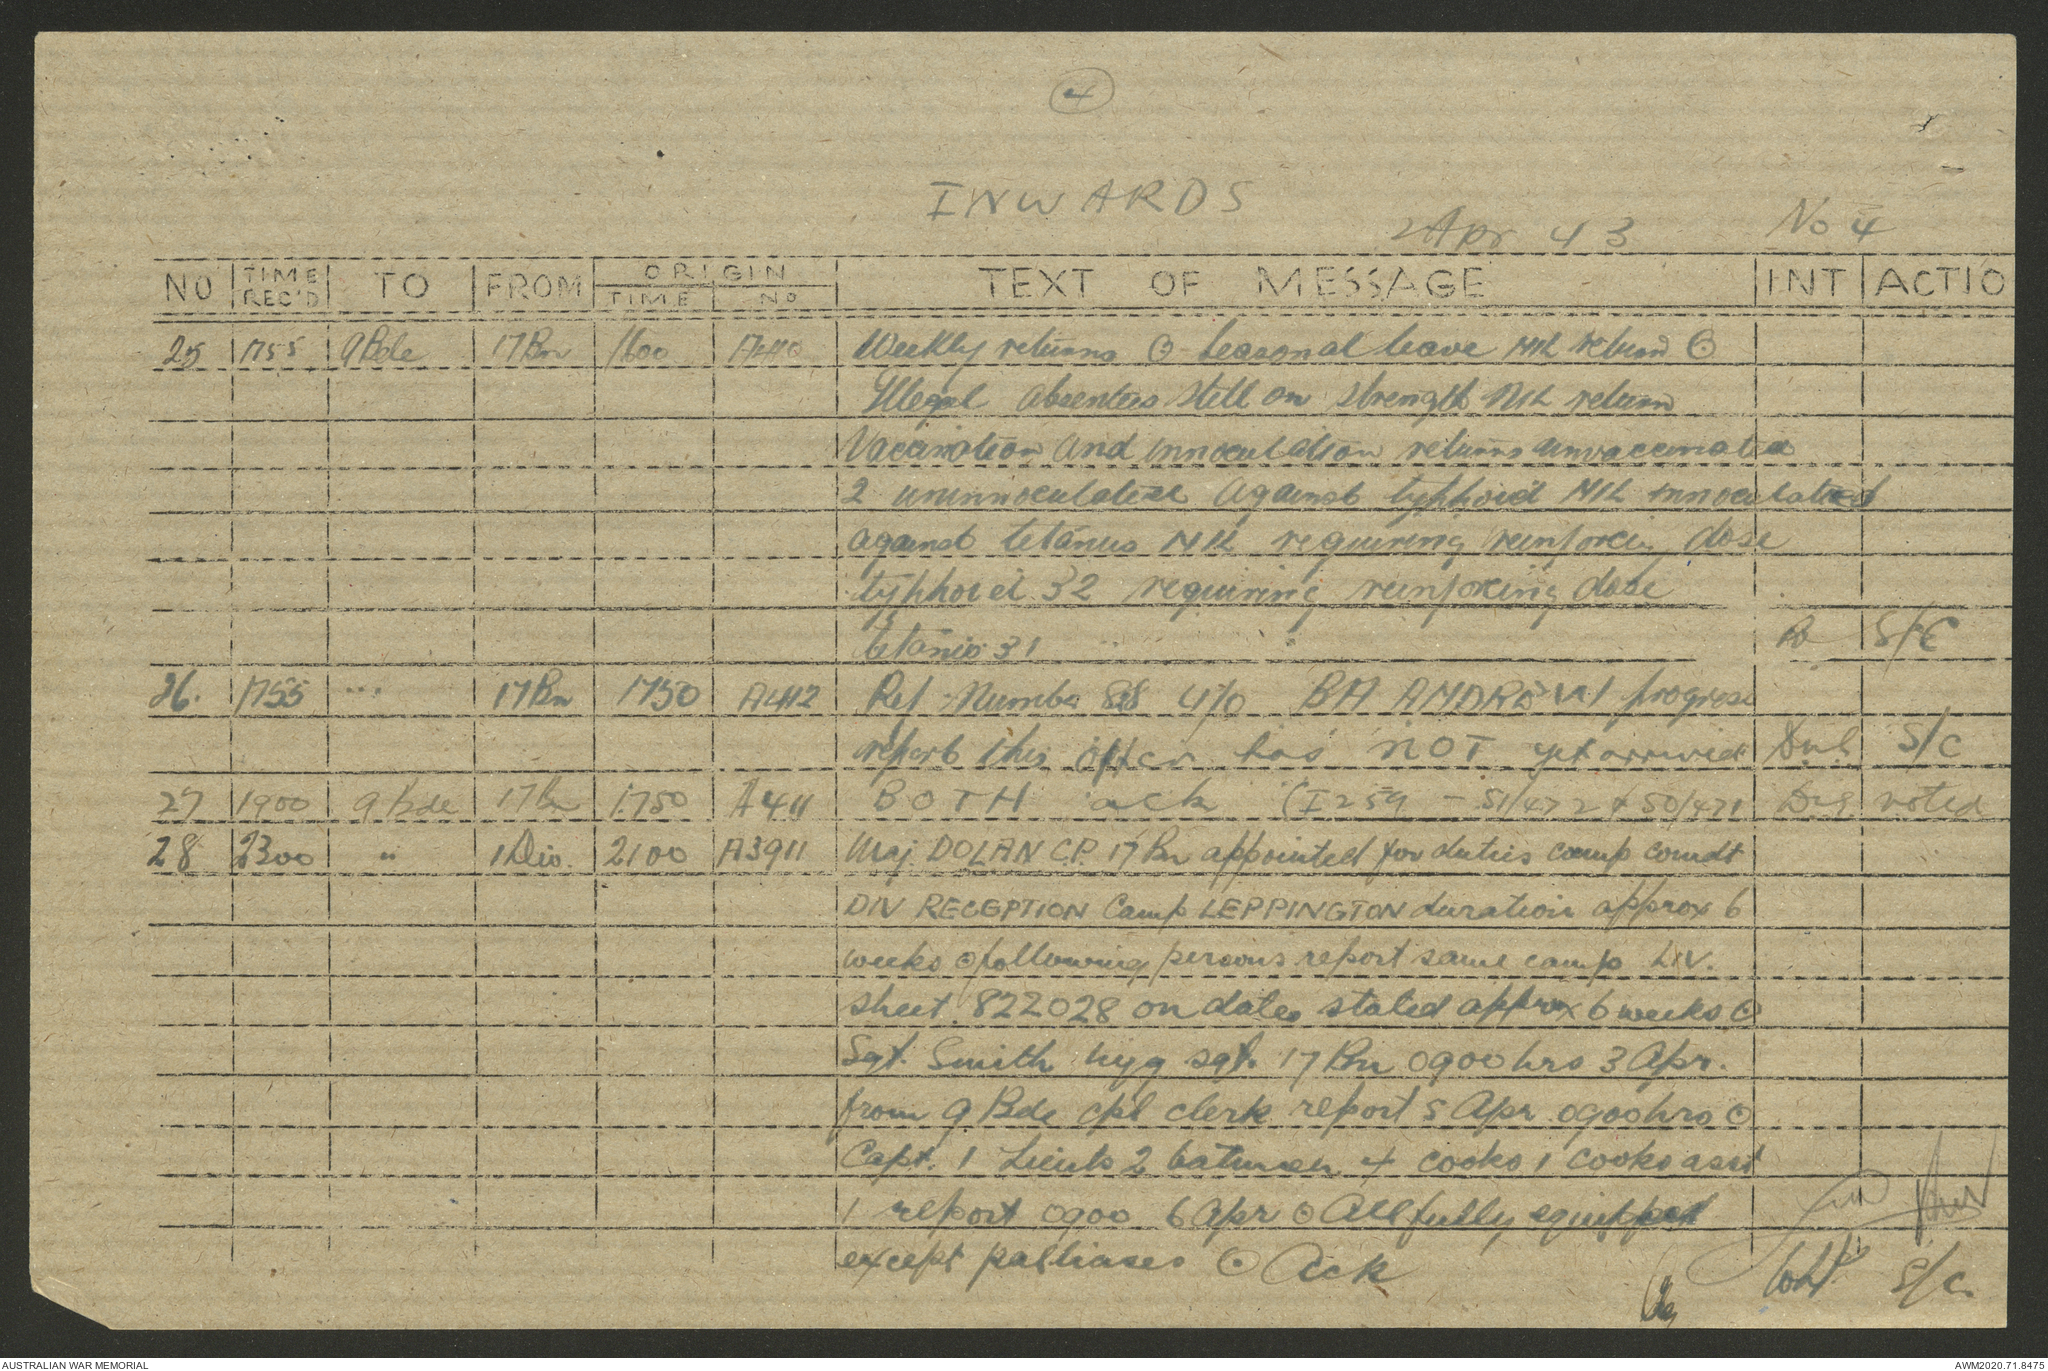 4
INWARDS
2 Apr 43 No 4
NO TIME REC'D TO FROM ORIGIN TIME NO TEXT OF MESSAGE INT ACTIO
25 1755 9 Bde 17 Bn 1600 A410 Weekly returns ⊙ Seasonal leave NIL return ⊙
Illegal absentees still on strength NIL return
Vaccination and innoculation returns unvaccinated
2 uninnoculated against typhoid NIL innoculated
against tetanus NIL requiring reinforcing dose
typhoid 32 requiring reinforcing dose
tetanus 31 S/C
26. 1755 " 17 Bn 1750 A412 Ref Number 828 4/0 BH ANDREW progress
report this offcer has NOT yet arrived S/C
27 1900 9 Bde 17 Bn 1750 A411 BOTH ack (I259 - 51/472 + 50/471 noted
28 2300 " 1 Div. 2100 A3911 Maj. DOLAN C.P. 17 Bn appointed for duties camp comdt
DIV RECEPTION Camp LEPPINGTON duration approx 6
weeks ⊙ following persons report same camp LIV.
sheet 822028 on dates stated approx 6 weeks ⊙
Sgt. Smith hyg sgt. 17 Bn 0900 hrs 3 Apr.
from 9 Bde cpl clerk report 5 Apr 0900 hrs ⊙
Capt. 1 Lieuts 2 batmen 4 cooks 1 cooks asst
1 report 0900 6 Apr ⊙ All fully equipped
except palliases ⊙ Ack S/C.
AUSTRALIAN WAR MEMORIAL AWM2020.71.8475